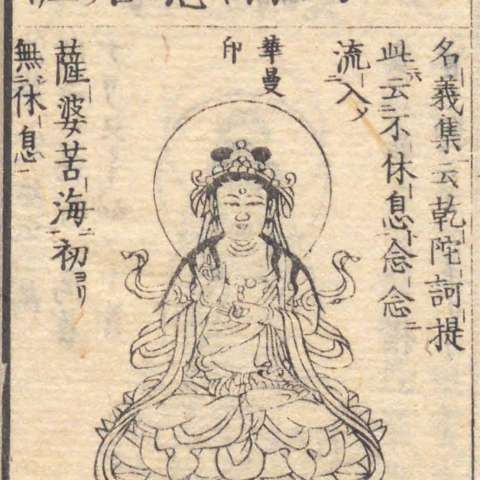 名義集云乾陀訶提
此云不休息念念
流入
華曼
印
薩婆苦海初ヨリ
無休息